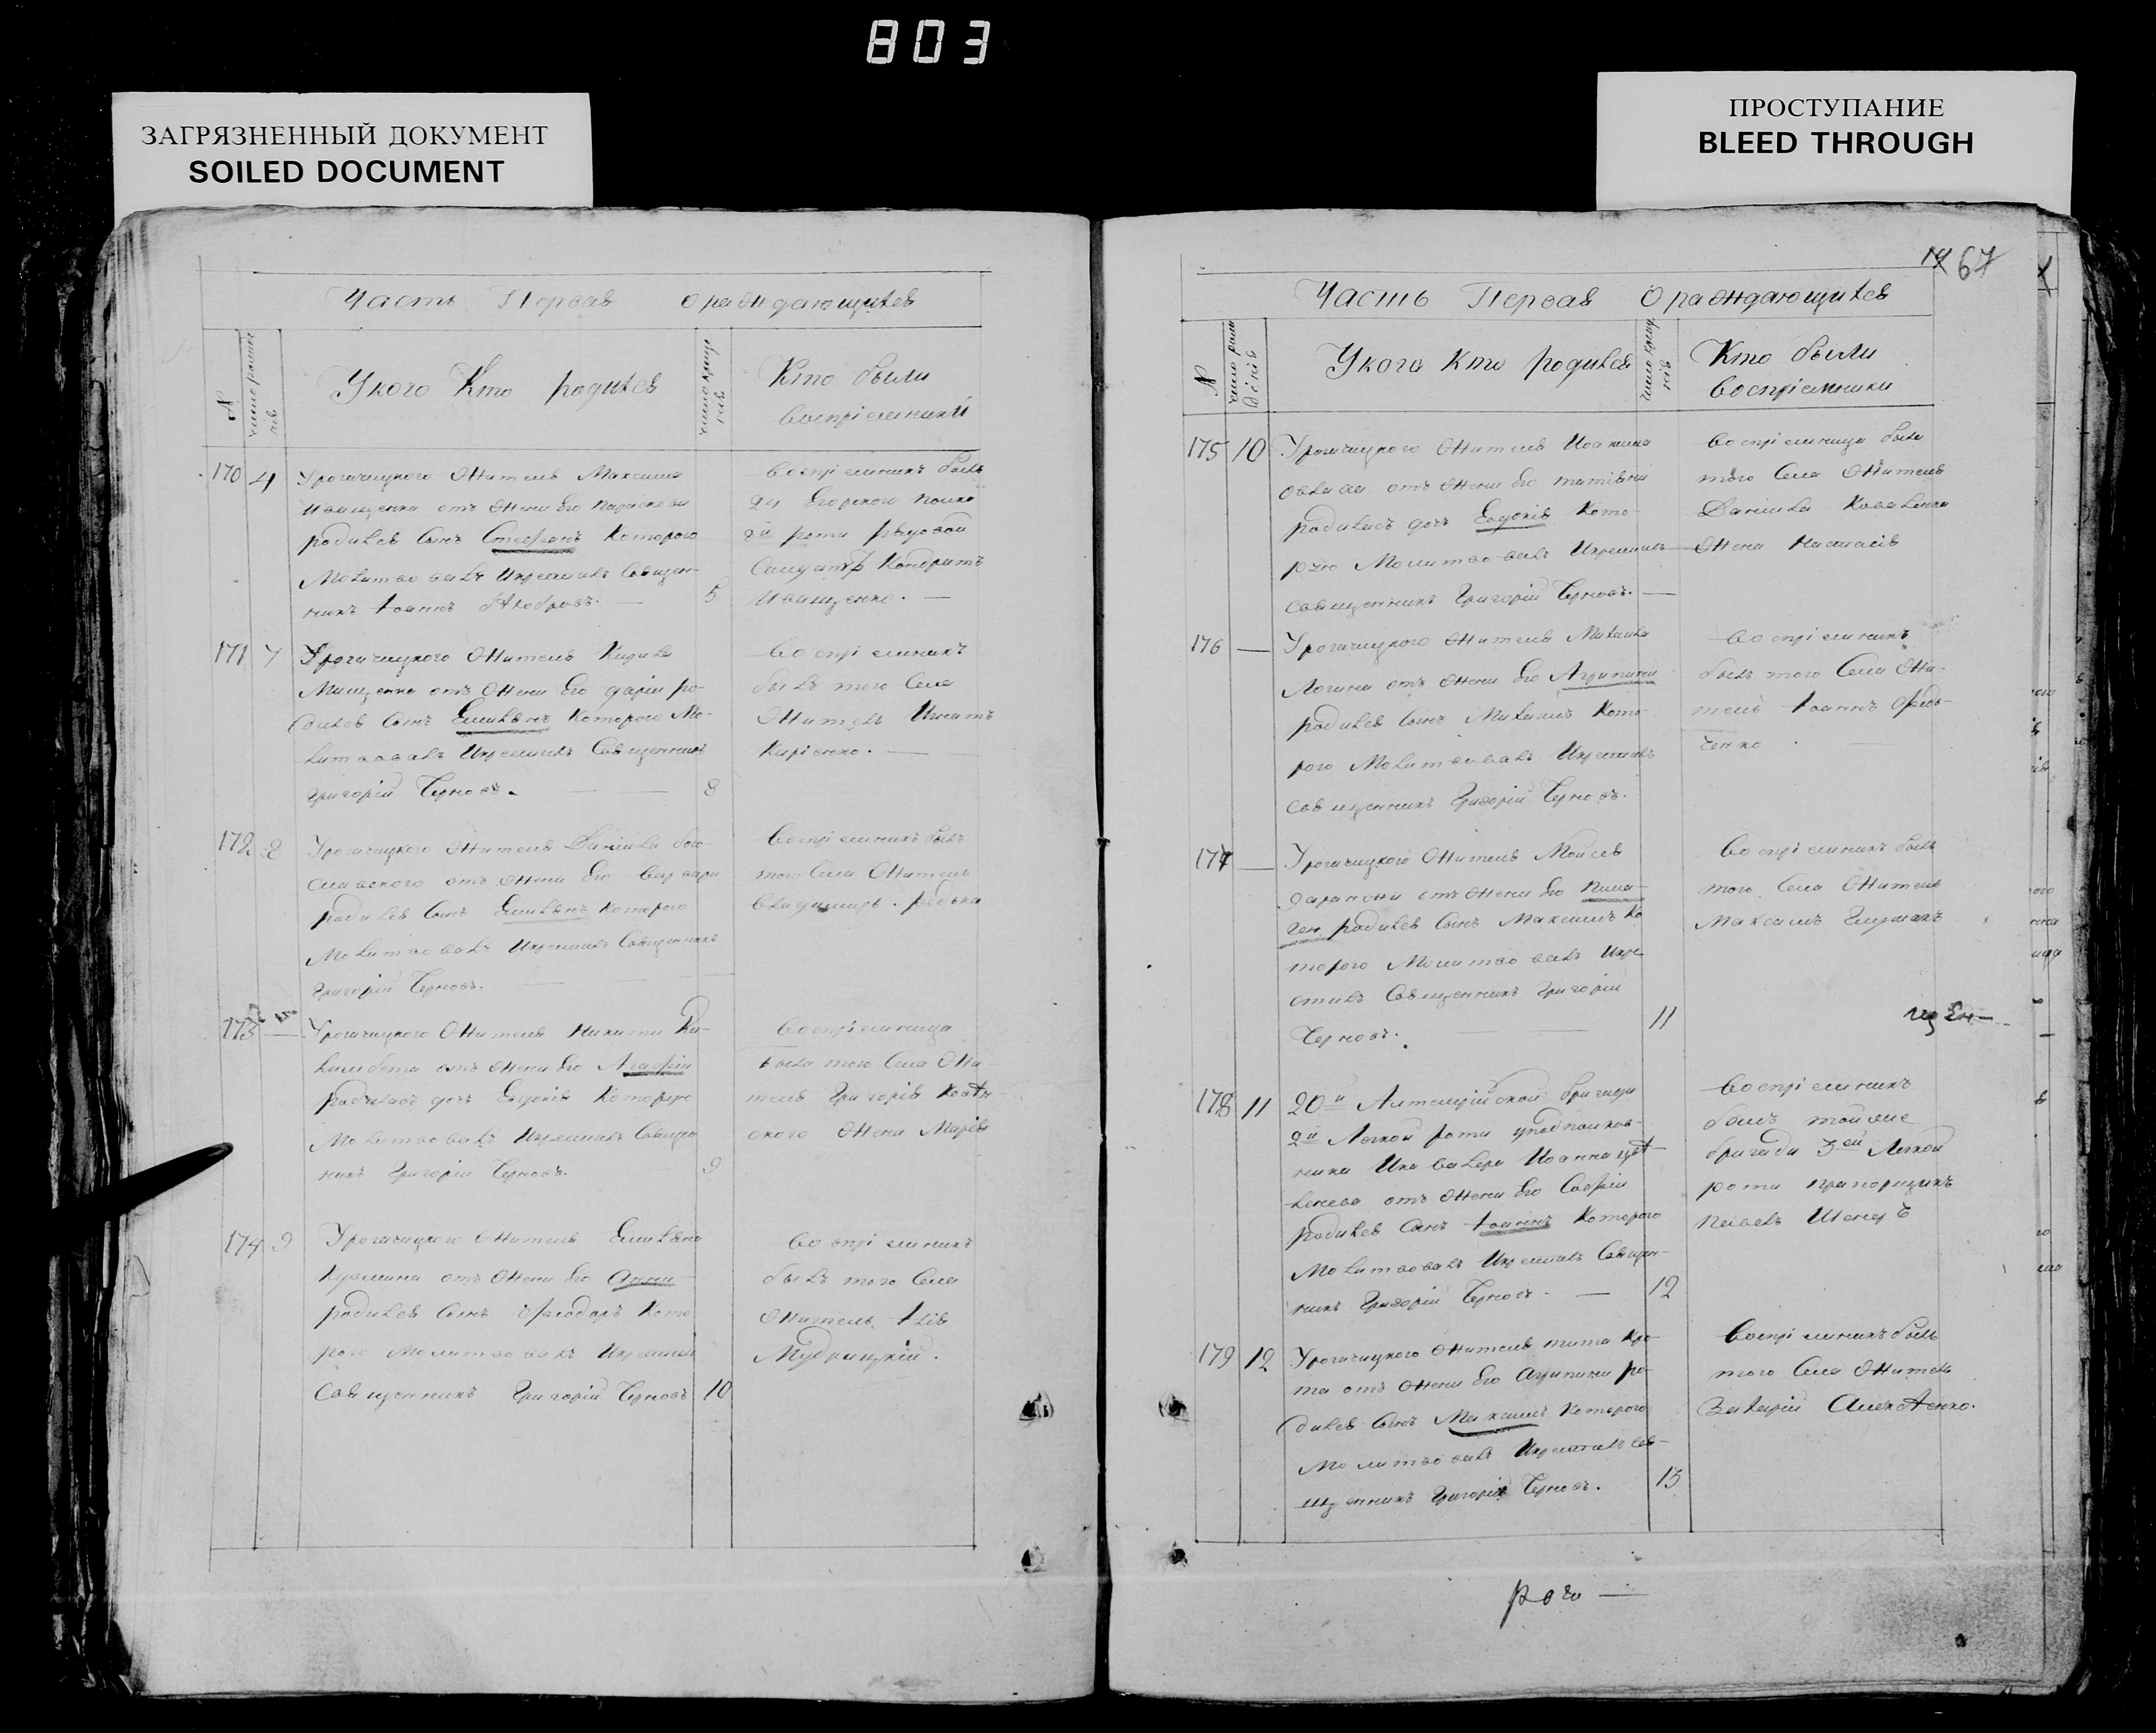 803
ЗАГРЯЗНЕННЫЙ ДОКУМЕНТ
SOILED DOCUMENT
ПРОСТУПАНИЕ
BLEED THROUGH
Часть Первая о раждающихся
№
Укого Кто родился
Кто были
воспріемники
170 4 Урогачицкого жителя Максима
Иващенка отъ жены Его Параскеви
родился сынъ Стефанъ Которого
Молитвовалъ Икрестилъ Священ-
никъ Іоаннъ 5
воспріемникъ былъ
24 Егорского полка
роти рядовой
Солдатъ Кондратъ
Иващенко.
171 7 Урогачицкого жителя Кирила
Мищенка отъ жены Его Даріи ро-
дился сынъ Емиліянъ Которого Мо-
литвовалъ Икрестилъ Священникъ
Григорій Черновъ. 8
воспріемникъ
былъ того Села
житель Игнатъ
Киріенко.
172 8 Урогачицкого жителя Даніила Бого-
славского отъ жены Его Варвари
родился сынъ Емиліянъ Которого
Молитвовалъ Икрестилъ Священникъ
Григорій Черновъ.
воспріемникъ былъ
того Села житель
Владимиръ Редька
173 — Урогачицкого жителя Никити
отъ жены Его Агафіи
родилась дочь Евдокія Которую
Молитвовалъ Икрестилъ Священ
никъ Григорій Черновъ. 9
Воспріемница
была того Села жи
теля Григорія
ского жена Марія
174 9 Урогачицкого жителя Емиліяна
Кузмина отъ жены Его Анни
родился сынъ Феодоръ Кото
рого Молитвовалъ Икрестилъ
Священникъ Григорій Черновъ 10
воспріемникъ
былъ того Села
житель Илія
Мудрицкій.
67
Часть Первая О раждающихся
№
Укого Кто родился
Кто были
воспріемники
175 10 Урогачицкого жителя Иоакима
отъ жены Его
родилась дочь Евдокія Кото-
рую Молитвовалъ Икрестилъ
священникъ Григорій Черновъ.
воспріемница была
того Села жителя
Даніила Коваленка
жена Наталія
176 — Урогачицкого жителя Михаила
Логина отъ жены Его Агрипини
родился сынъ Михаилъ Кото-
рого Молитвовалъ Икрестилъ
Священникъ Григорій Черновъ.
воспріемникъ
былъ того Села жи-
тель Іоаннъ Федь-
ченко
177 — Урогачицкого жителя Мойсея
отъ жены Его Пела-
геи родился сынъ Максимъ Ко
торого Молитвовалъ Икре
стилъ Священникъ Григорій
Черновъ. 11
воспріемникъ былъ
того Села житель
Максимъ
178 11 20й Артилерійской бригади
2й Легкой роти уподполков-
ника Икавалера Иоанна
отъ жены Его Софіи
родился сынъ Іоаннъ Которого
Молитвовалъ Икрестилъ Священ-
никъ Григорій Черновъ. 12
воспріемникъ
былъ той же
бригади 3ей Легкой
роти прапорщикъ
Павелъ
179 12 Урогачицкого жителя Тита Кро-
та отъ жены Его Агрипини ро-
дился сынъ Максимъ Которого
Молитвовалъ Икрестилъ Свя-
щенникъ Григорій Черновъ. 13
воспріемникъ былъ
того Села житель
Захарій